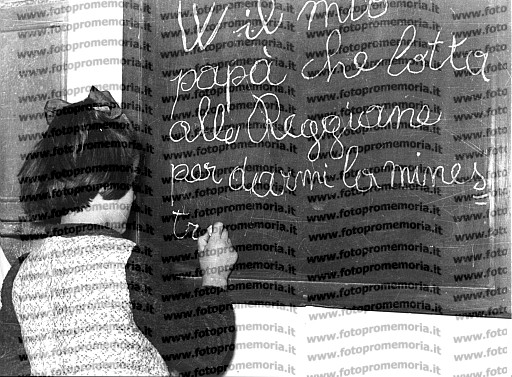 W il mio
papà che lotta
alle Reggiane
per darmi la mines
tr
www.fotopromemoria.it